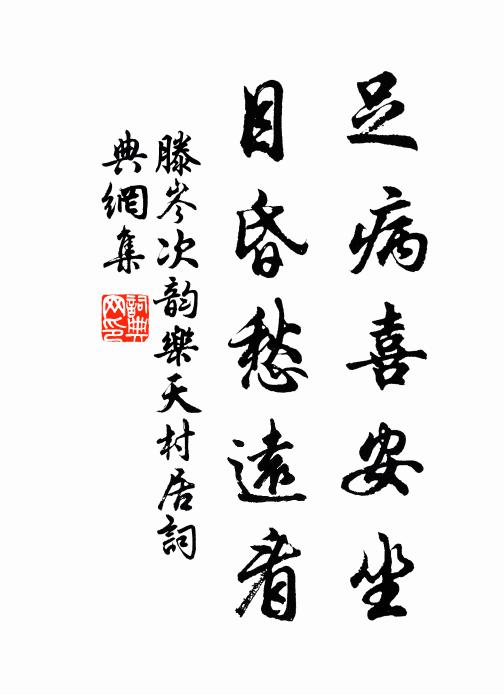 足病喜安坐
目昏愁遠看
滕岑次韵樂天村居詞
典網集
詞典
网印